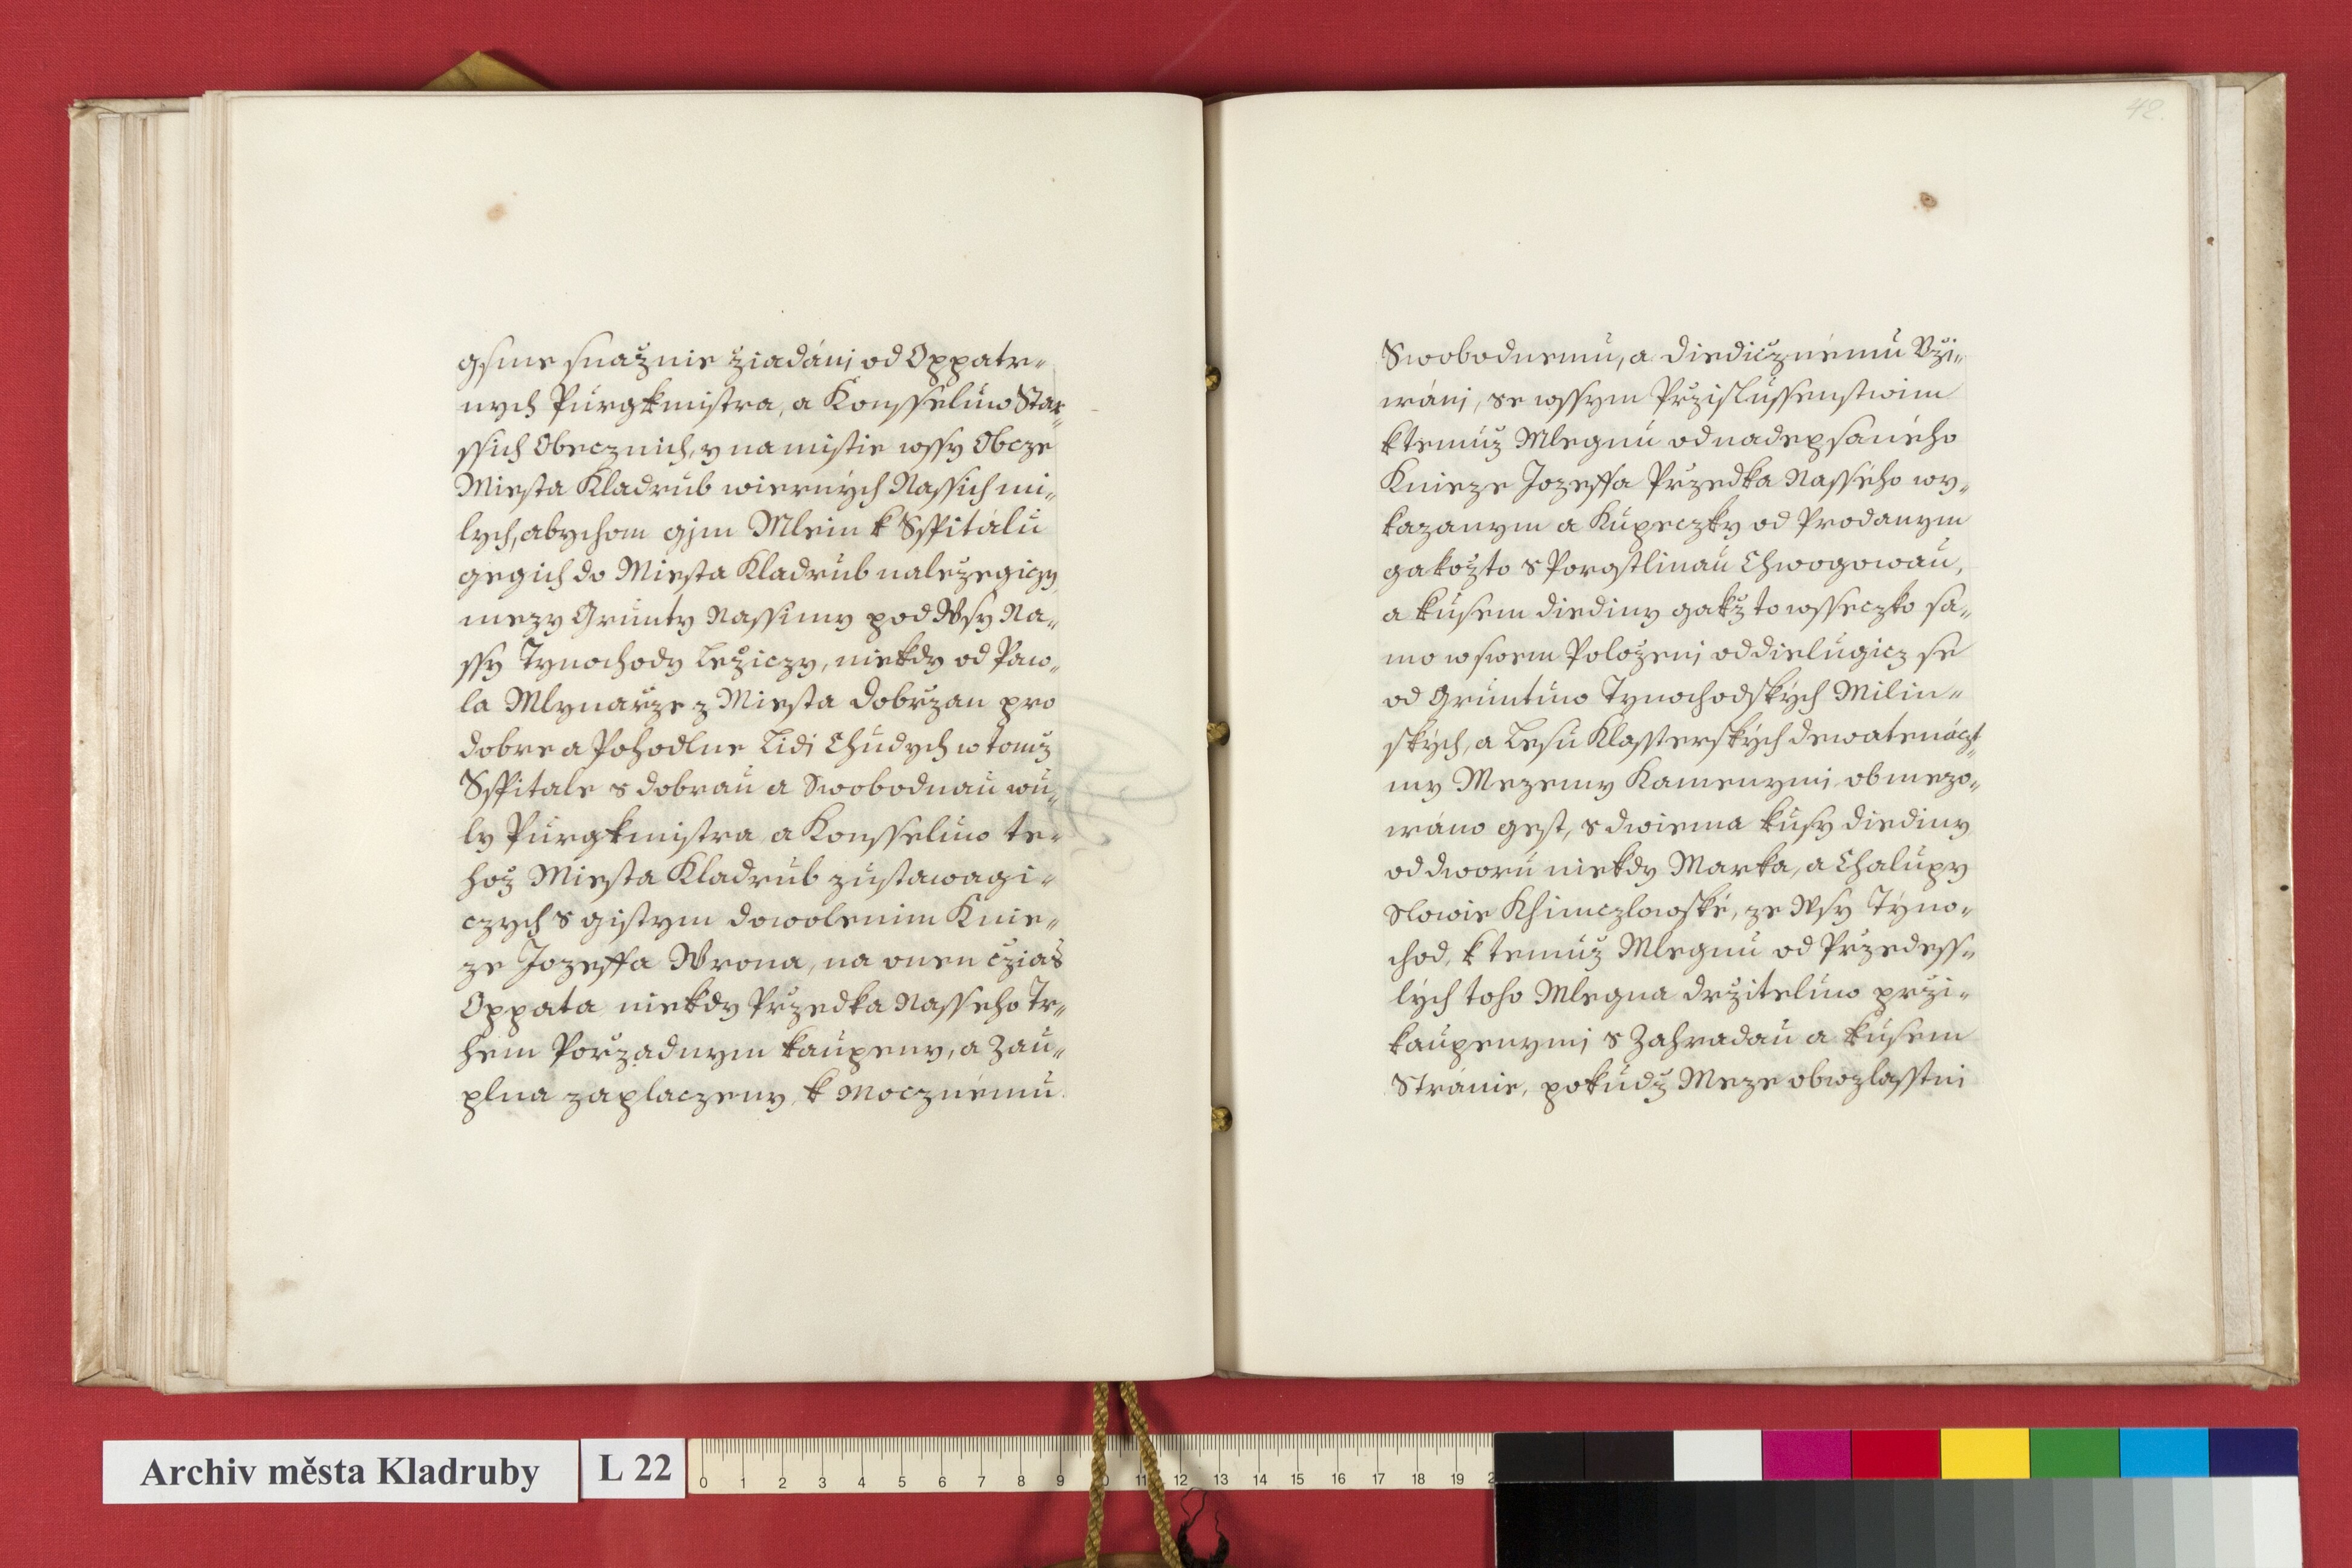 gsme snažnie žiadáni od Oppatr„
nych Purgkmistra, a Konsseluw Star„
ssich Obecznich, y na mistie wssy Obcze
Miesta Kladrub wierných Nassich mi„
lych, abychom gjm Mlein k Sspitálu
gegich do Miesta Kladrub naležegiczy,
mezy Grunty Nassimy pod Wsy Na„
ssy Tynochody Ležiczy, niekdy od Paw„
la Mlynaŕze z Miesta Dobrzan pro
dobre a Pohodlne Lidi Chudych w tomž
Sspitale s dobrau a Swobodnau wu„
ly Purgkmistra a Konsseluw te„
hož Miesta Kladrub zustawagi„
czych s gistym dowolenim Knie„
ze Jozeffa Wrona, na onen cžias
Oppata niekdy Pržedka Nasseho Tr„
hem Poržadnym kaupeny, a Zau„
plna zaplaczeny, k Mocznému
42.
Swobodnemu, a diedicžnému Vži„
wáni, se wssym Pržislussenstwim
k temuž Mlegnu od nadepsaného
Knieze Jozeffa Pržedka Nasseho wy„
kazanym a Kupeczky od Prodanym
gakožto s Porostlinau Chwogowau,
a kusem diediny gakž to wsseczko sa„
mo w swem Položeni oddielugicz se
od Gruntuw Tynochodských Milin„
ských, a Lesu Klassterských dewatenáczt„
my Mezemy Kamenymi obmezo„
wáno gest, s dwiema kusy diediny
od dworu niekdy Marka, a Chalupy
Slowie Khimczlowské, ze Wsy Týno„
chod, k temuž Mlegnu od Pržedess„
lých toho Mlegna držiteluw prži„
kaupenymi s Zahradau a kusem
Stránie, pokudž Meze obwzlasstni
Archiv města Kladruby
L 22
0 1 2 3 4 5 6 7 8 9 10 11 12 13 14 15 16 17 18 19 2